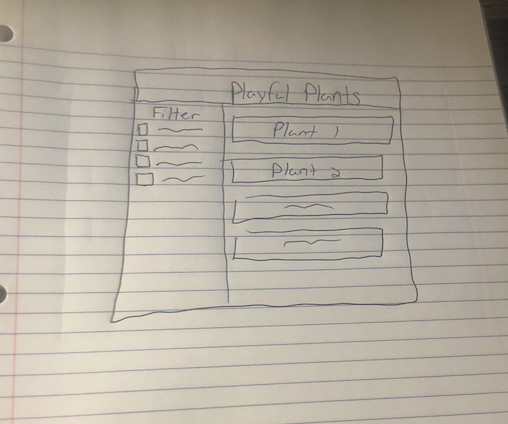 Playful Plants
Filter
Plant 1
Plant 2